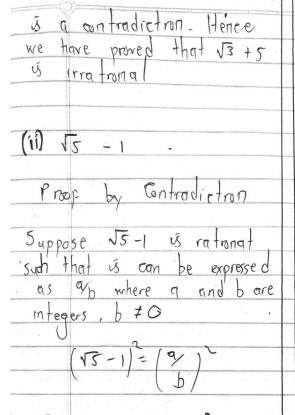 is a contradiction. Hence
we have proved that √3 + 5
is irrational
(ii) √5 - 1 .
Proof by Contradiction
Suppose √5-1 is rational
such that is can be expressed
as a/b where a and b are
integers, b ≠ 0
(√5 - 1)² = (a/b)²